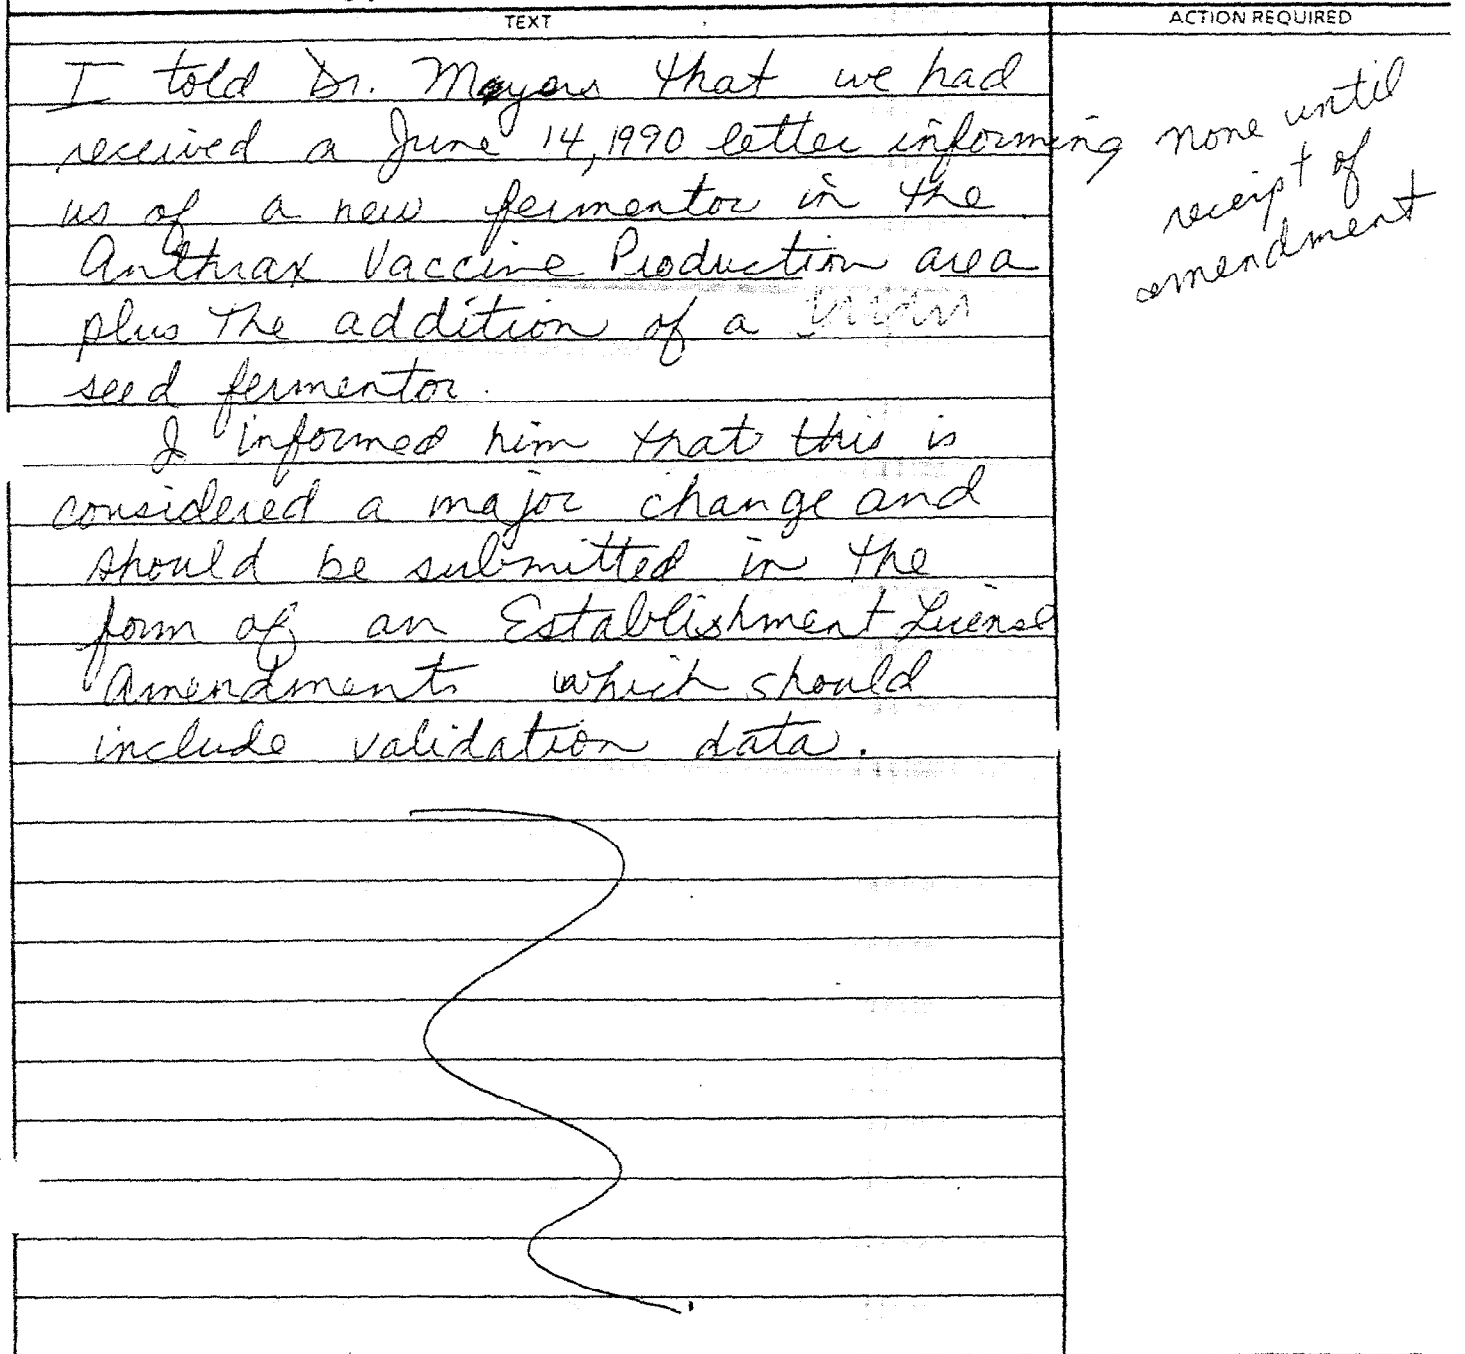 TEXT
ACTION REQUIRED
I told Dr. Mayers that we had
received a June 14, 1990 letter informing
us of a new fermentor in the
Anthrax Vaccine Production area
plus the addition of a
seed fermentor.
I informed him that this is
considered a major change and
should be submitted in the
form of an Establishment License
Amendment which should
include validation data.
none until
receipt of
amendment